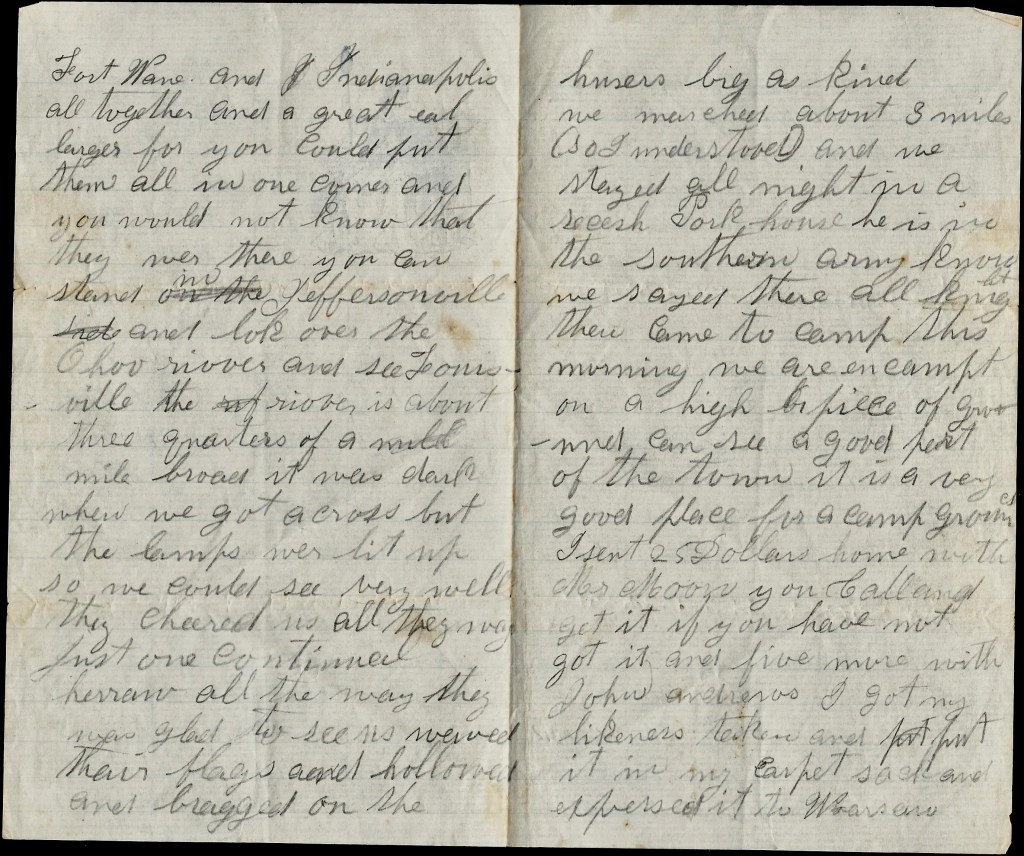 Fort Wane. and I Indianapolis
all togather and a great eal
larger for you Could put
them all in one corner and
you would not know that
they wer there you can
stand on the in Jeffersonville
and lok over the
Ohoo riover and see Louis-
ville the riover is about
three quarters of a mill
mile broad it was dark
when we got across but
the lamps wer lit up
so we could see very well
they cheered us all they way
Just one Continuel
herraw all the way they
was glad to see us waived
thair flags aend hollowed
and bragged on the
husers big as kind
we marched about 3 miles
(so I understood) and we
stayed all night in a
secesh Pork house he is in
the southern army know
we sayed there all knight
then Came to camp this
morning we are encampt
on a high piece of groo
-und can see a good part
of the town it is a very
good place for a camp ground
I sent 25 Dollars home with
Mr Moon you Call and
get it if you have not
got it and five more with
John andrews I got my
likeness taken and put put
it in my carpet sack and
expersed it to Warsaw